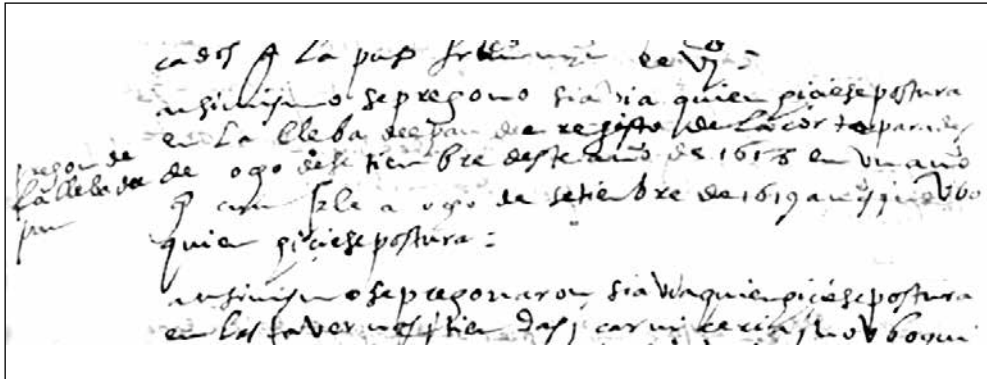 cados A La paz
ansimismo sepregono siavia quien yiciese postura
en La lleba deepan de registo de La corte para des
de ogo desetienbre desteano de 1618 en un año
q cunple a ogo de setienbre de 1619 a ubo
quien yiciese postura:
pregon de
La lleba de
pan
ansimismo sepregonaron siavia quien yiciese postura
en las tavernas y tiendas y carniceria y no ubo qui